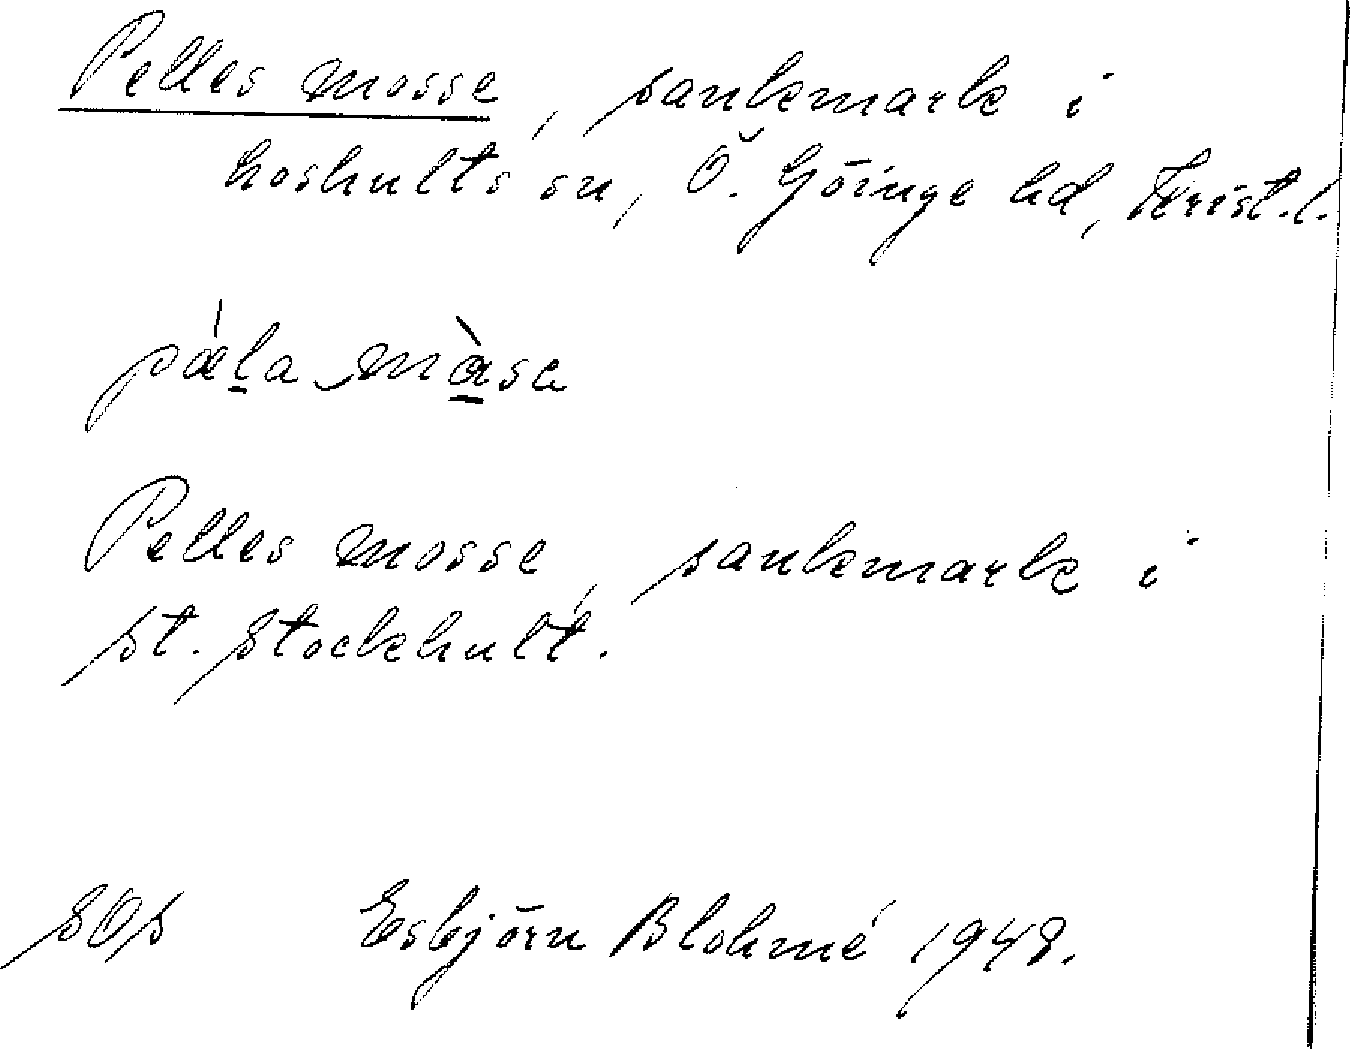 Pelles mosse, sankmark i
Loshults sn, Ö. Göinge hd, Krist. l.
pæ̀la màsa
Pelles mosse, sankmark i
St. Stockhult.
SOS Esbjörn Blohmé 1948.